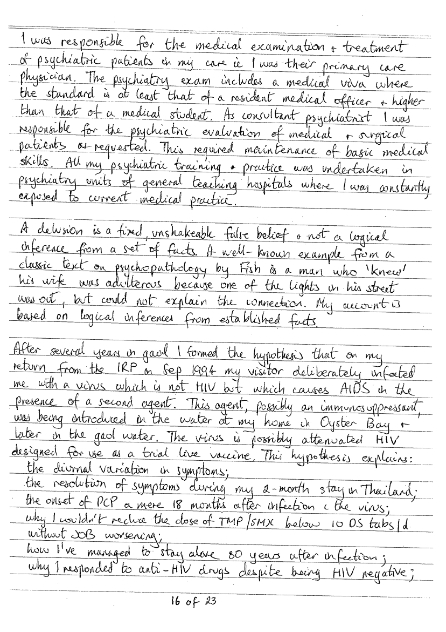 I was responsible for the medical examination + treatment
of psychiatric patients in my care ie I was their primary care
physician. The psychiatry exam includes a medical viva where
the standard is at least that of a resident medical officer + higher
than that of a medical student. As consultant psychiatrist I was
responsible for the psychiatric evaluation of medical + surgical
patients as requested. This required maintenance of basic medical
skills. All my psychiatric training + practice was undertaken in
psychiatry units of general teaching hospitals where I was constantly
exposed to current medical practice.
A delusion is a fixed, unshakeable false belief + not a logical
inference from a set of facts. A well-known example from a
classic text on psychopathology by Fish is a man who 'knew'
his wife was adulterous because one of the lights in his street
was out, but could not explain the connection. My account is
based on logical inferences from established facts.
After several years in gaol I formed the hypothesis that on my
return from the IRP in Sep 1994 my visitor deliberately infected
me with a virus which is not HIV but which causes AIDS in the
presence of a second agent. This agent, possibly an immunosuppressant,
was being introduced in the water at my home in Oyster Bay +
later in the gaol water. The virus is possibly attenuated HIV
designed for use as a trial live vaccine. This hypothesis explains:
the diurnal variation in symptoms;
the resolution of symptoms during my 2-month stay in Thailand;
the onset of PCP a mere 18 months after infection c the virus;
why I couldn't reduce the dose of TMP/SMX below 10 DS tabs/d
without SOB worsening;
how I've managed to stay alive 30 years after infection;
why I responded to anti-HIV drugs despite being HIV negative;
16 of 23